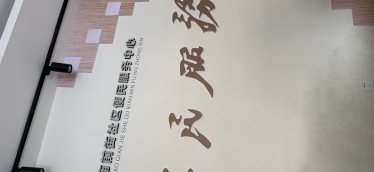 民服務
前街社区便民服务中心
QIAN JIE SHE QU BIAN MIN FU WU ZHONG XIN